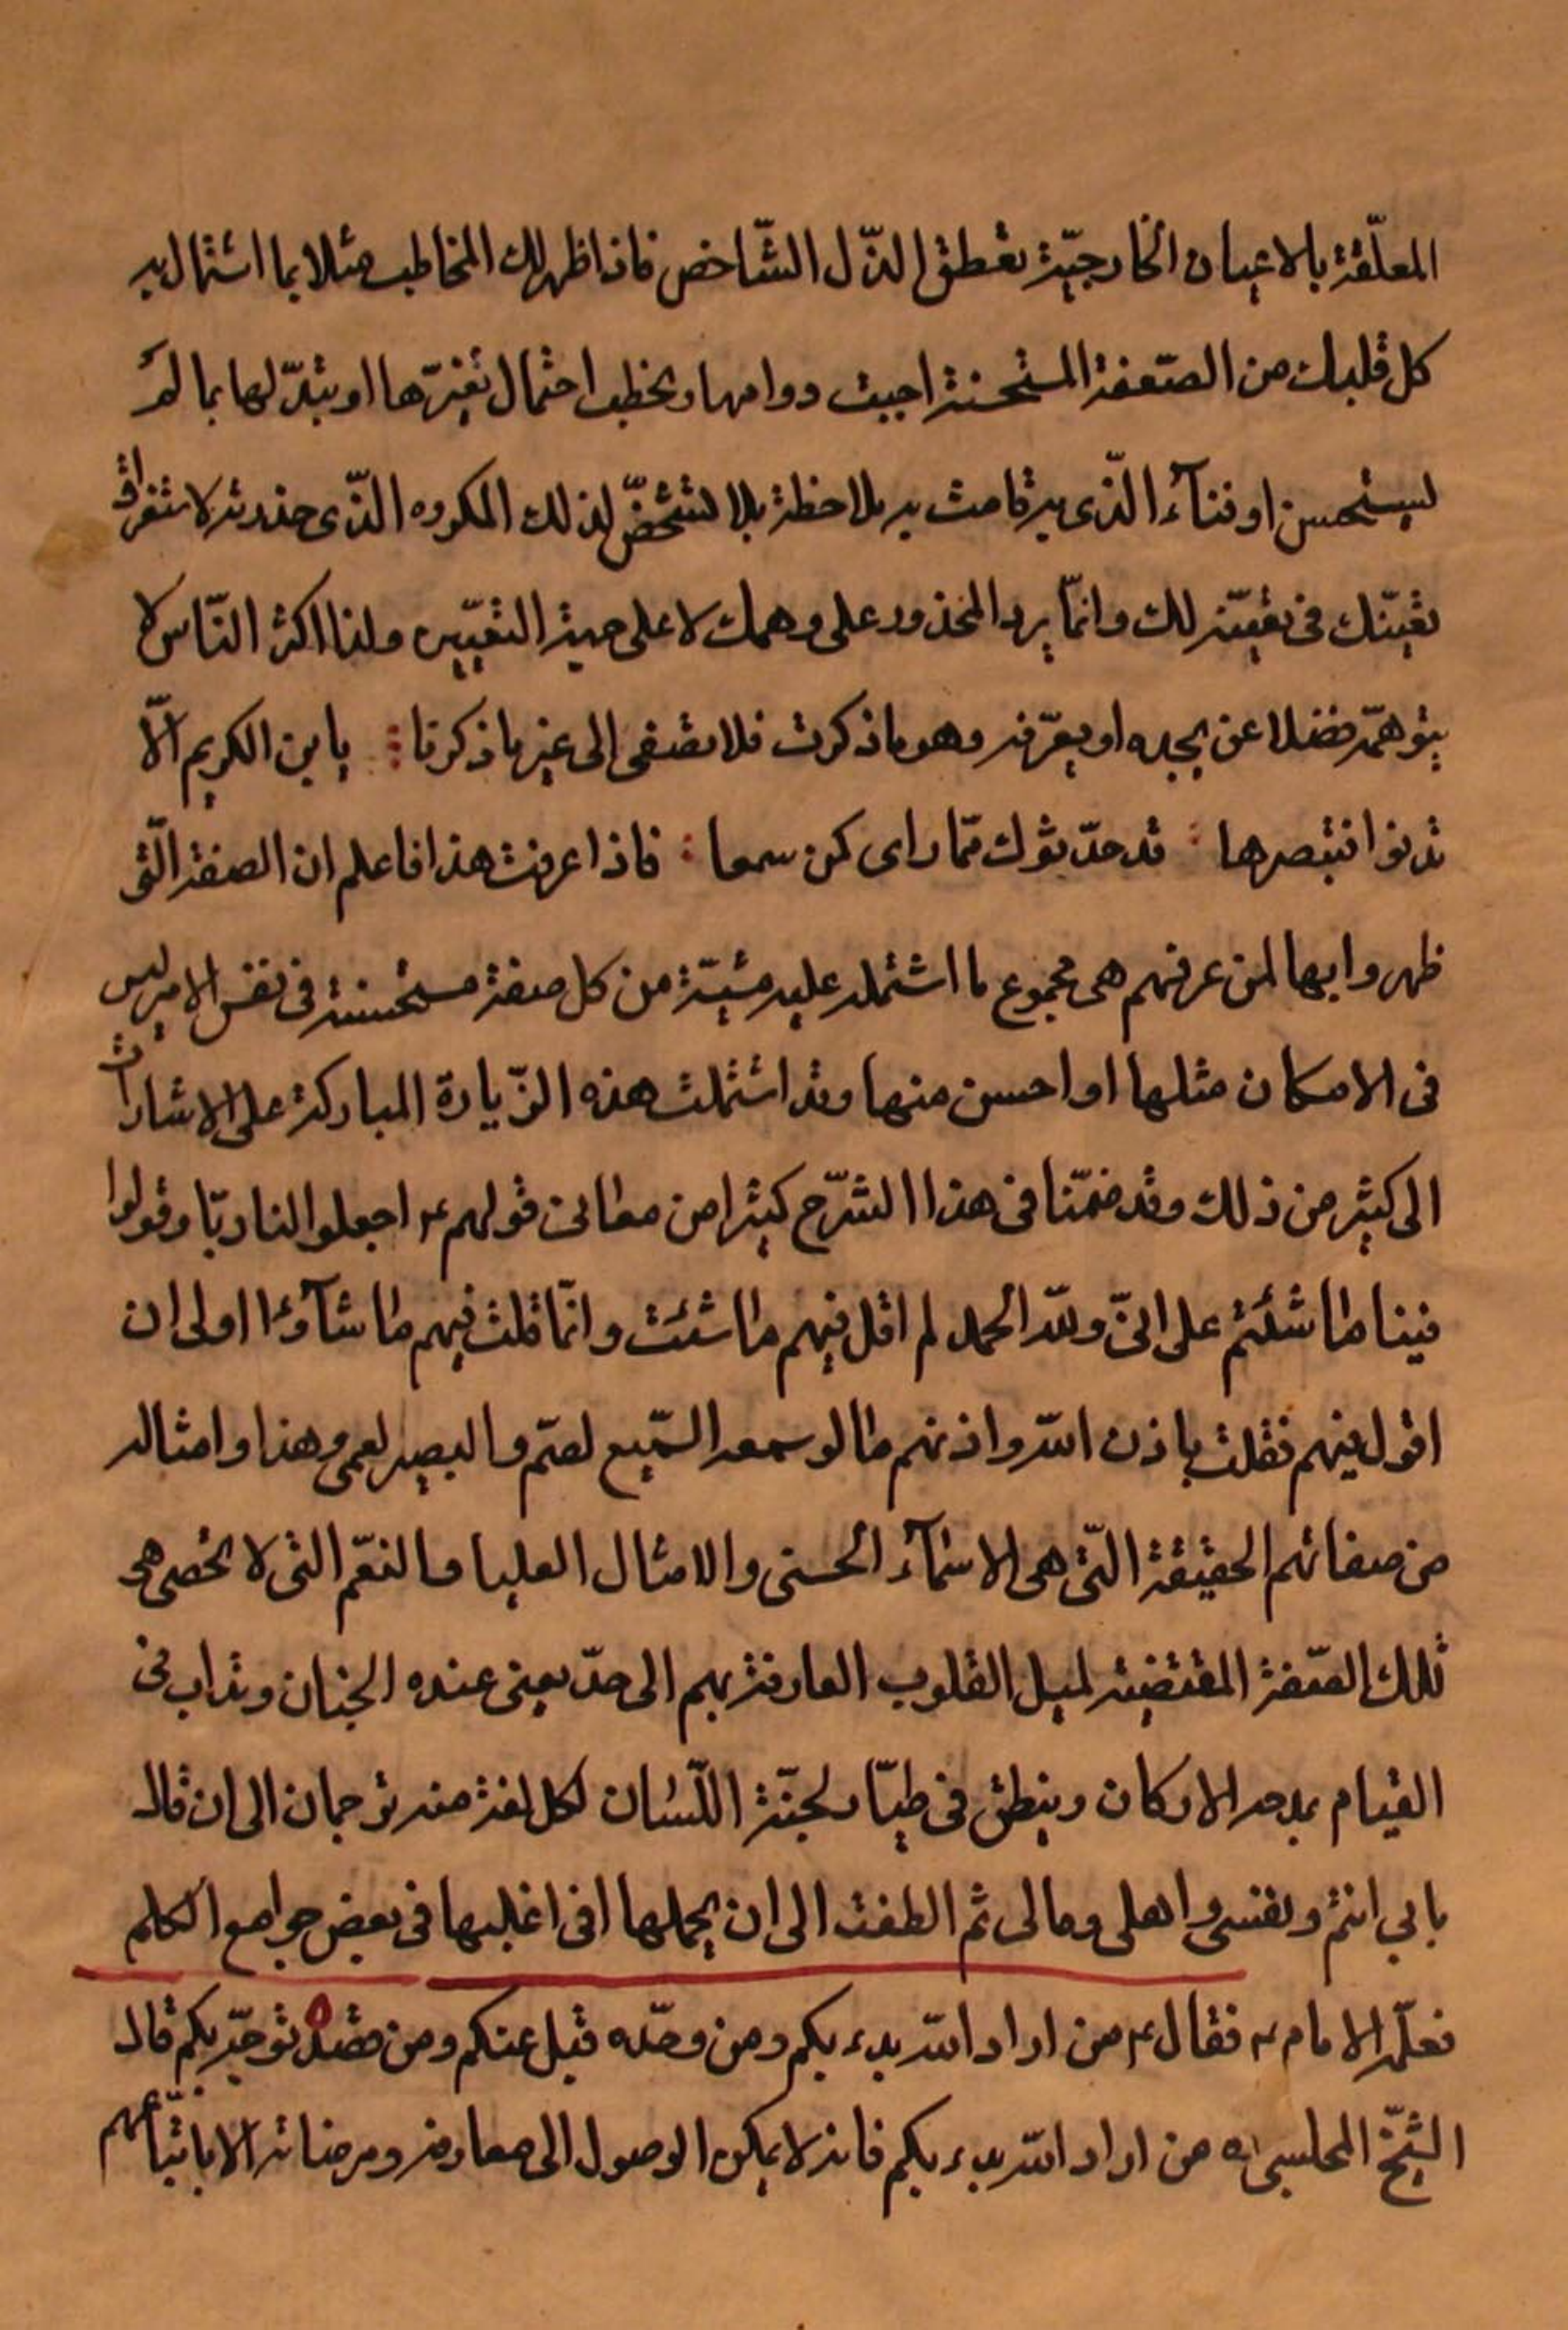 المعلّقة بالاعيان الخارجيّة تعطق الدّل الشّاخص فاذا ظهر لك المخاطب مثلا بما اشتمال به
كل قلبك من الصّعفة المستحسنة اجبت دوامها ويخطب احتمال تغيّرها او يتبدّلها بما لم
يستحسن او فنآء الّذى به قامت به بملاحظة بلا تشخّض لذلك المكروه الّذى حذرته لاستغراق
تعيّنك فى تعيّنه لك وانّما يرد المحذور على وهمك لا على جهة التعيّين ولذا اكثر النّاس لا
يتوهمّه فضلا عن يجده او يعرّفه وهو ما ذكرت فلا تصغى الى غير ما ذكرنا ؞ يابن الكريم الّا
تدنوا فتبصر ها ؞ قد حدّثوك فما راى كمن سمعا ؞ فاذا عرفت هذا فاعلم ان الصفة الّتى
ظهروا بها لمن عرفهم هى مجموع ما اشتمله عليه مشيّة من كل صفة مستحسنة فى نفس الامر ليس
فى الامكان مثلها او احسن منها وقد اشتملت هذه الزّيارة المباركة على الاشارات
الى كثير من ذلك وقد ضمّنا فى هذا الشّرح كثيرا من معانى قولهم ع اجعلوا لنا ربّا وقولوا
فينا ما شئتم على انّى ولله الحمد لم اقل فيهم ما شئت وانّما قلت فيهم ما شآؤا اولى ان
اقول فيهم فقلت باذن الله واذنهم ما لو سمعه السّميع لصمّ والبصير لعمى وهذا وامثاله
من صفاتهم الحقيقة الّتى هى الاسمآء الحسنى والامثال العليا والنعّم التى لا تحصى هى
تلك الصّفة المقتضية لميل القلوب العارفة بهم الى حدّ يعنى عنده الجنان وتداب فى
القيام بمدحه الاركان وينطق فى طيّار لجنّة اللّسان لكل لغة منه ترجمان الى ان قال
بابي انتم ونفسى واهلى ومالى ثم الطفت الى ان يجملها افى اغلبها فى بعض جوامع الكلم
فعلّمه الامام ع فقال ع من اراد الله بدء بكم ومن وحّده قبل عنكم ومن قصده توجّه بكم قال
الشّيخ المجلسى ره من اراد الله بدء بكم فانه لا يمكن الوصول الى معارفه ومرضاته الا باتّباعهم